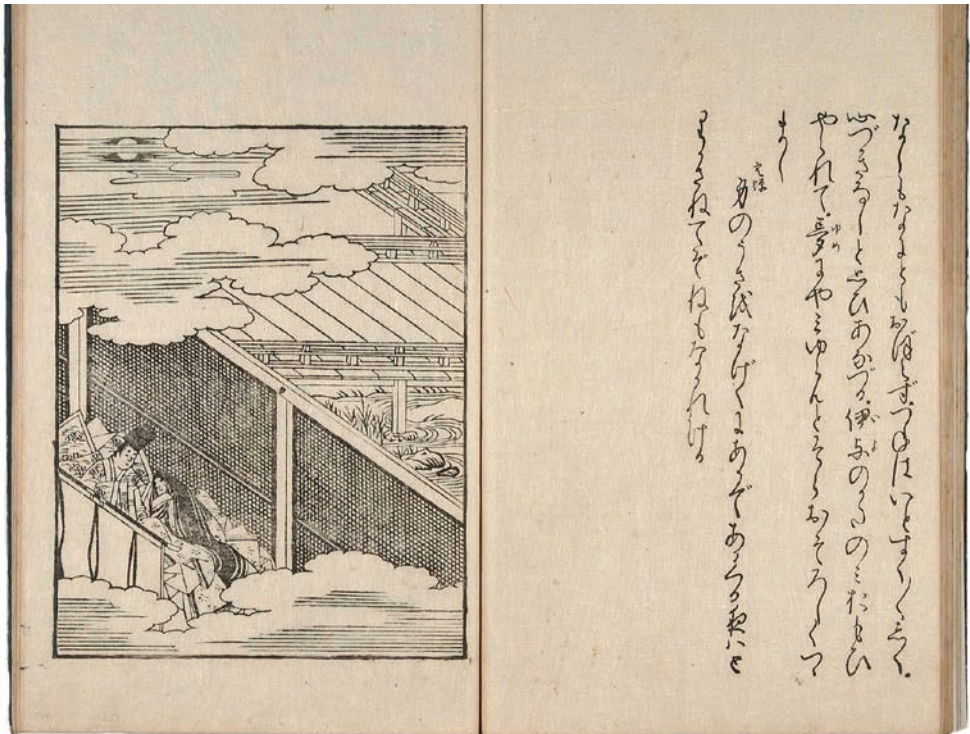 なしもなにともおぼえず。つねはいとすく〳〵しく。
心づきなしと思ひあなづる。伊与のかたのみおもひ
やられて。夢にやみゆらんとそらおそろしくつゝ
まし
空蝉
身のうさをなげくにあかであくる夜はと
りかさねてぞねもなかれける